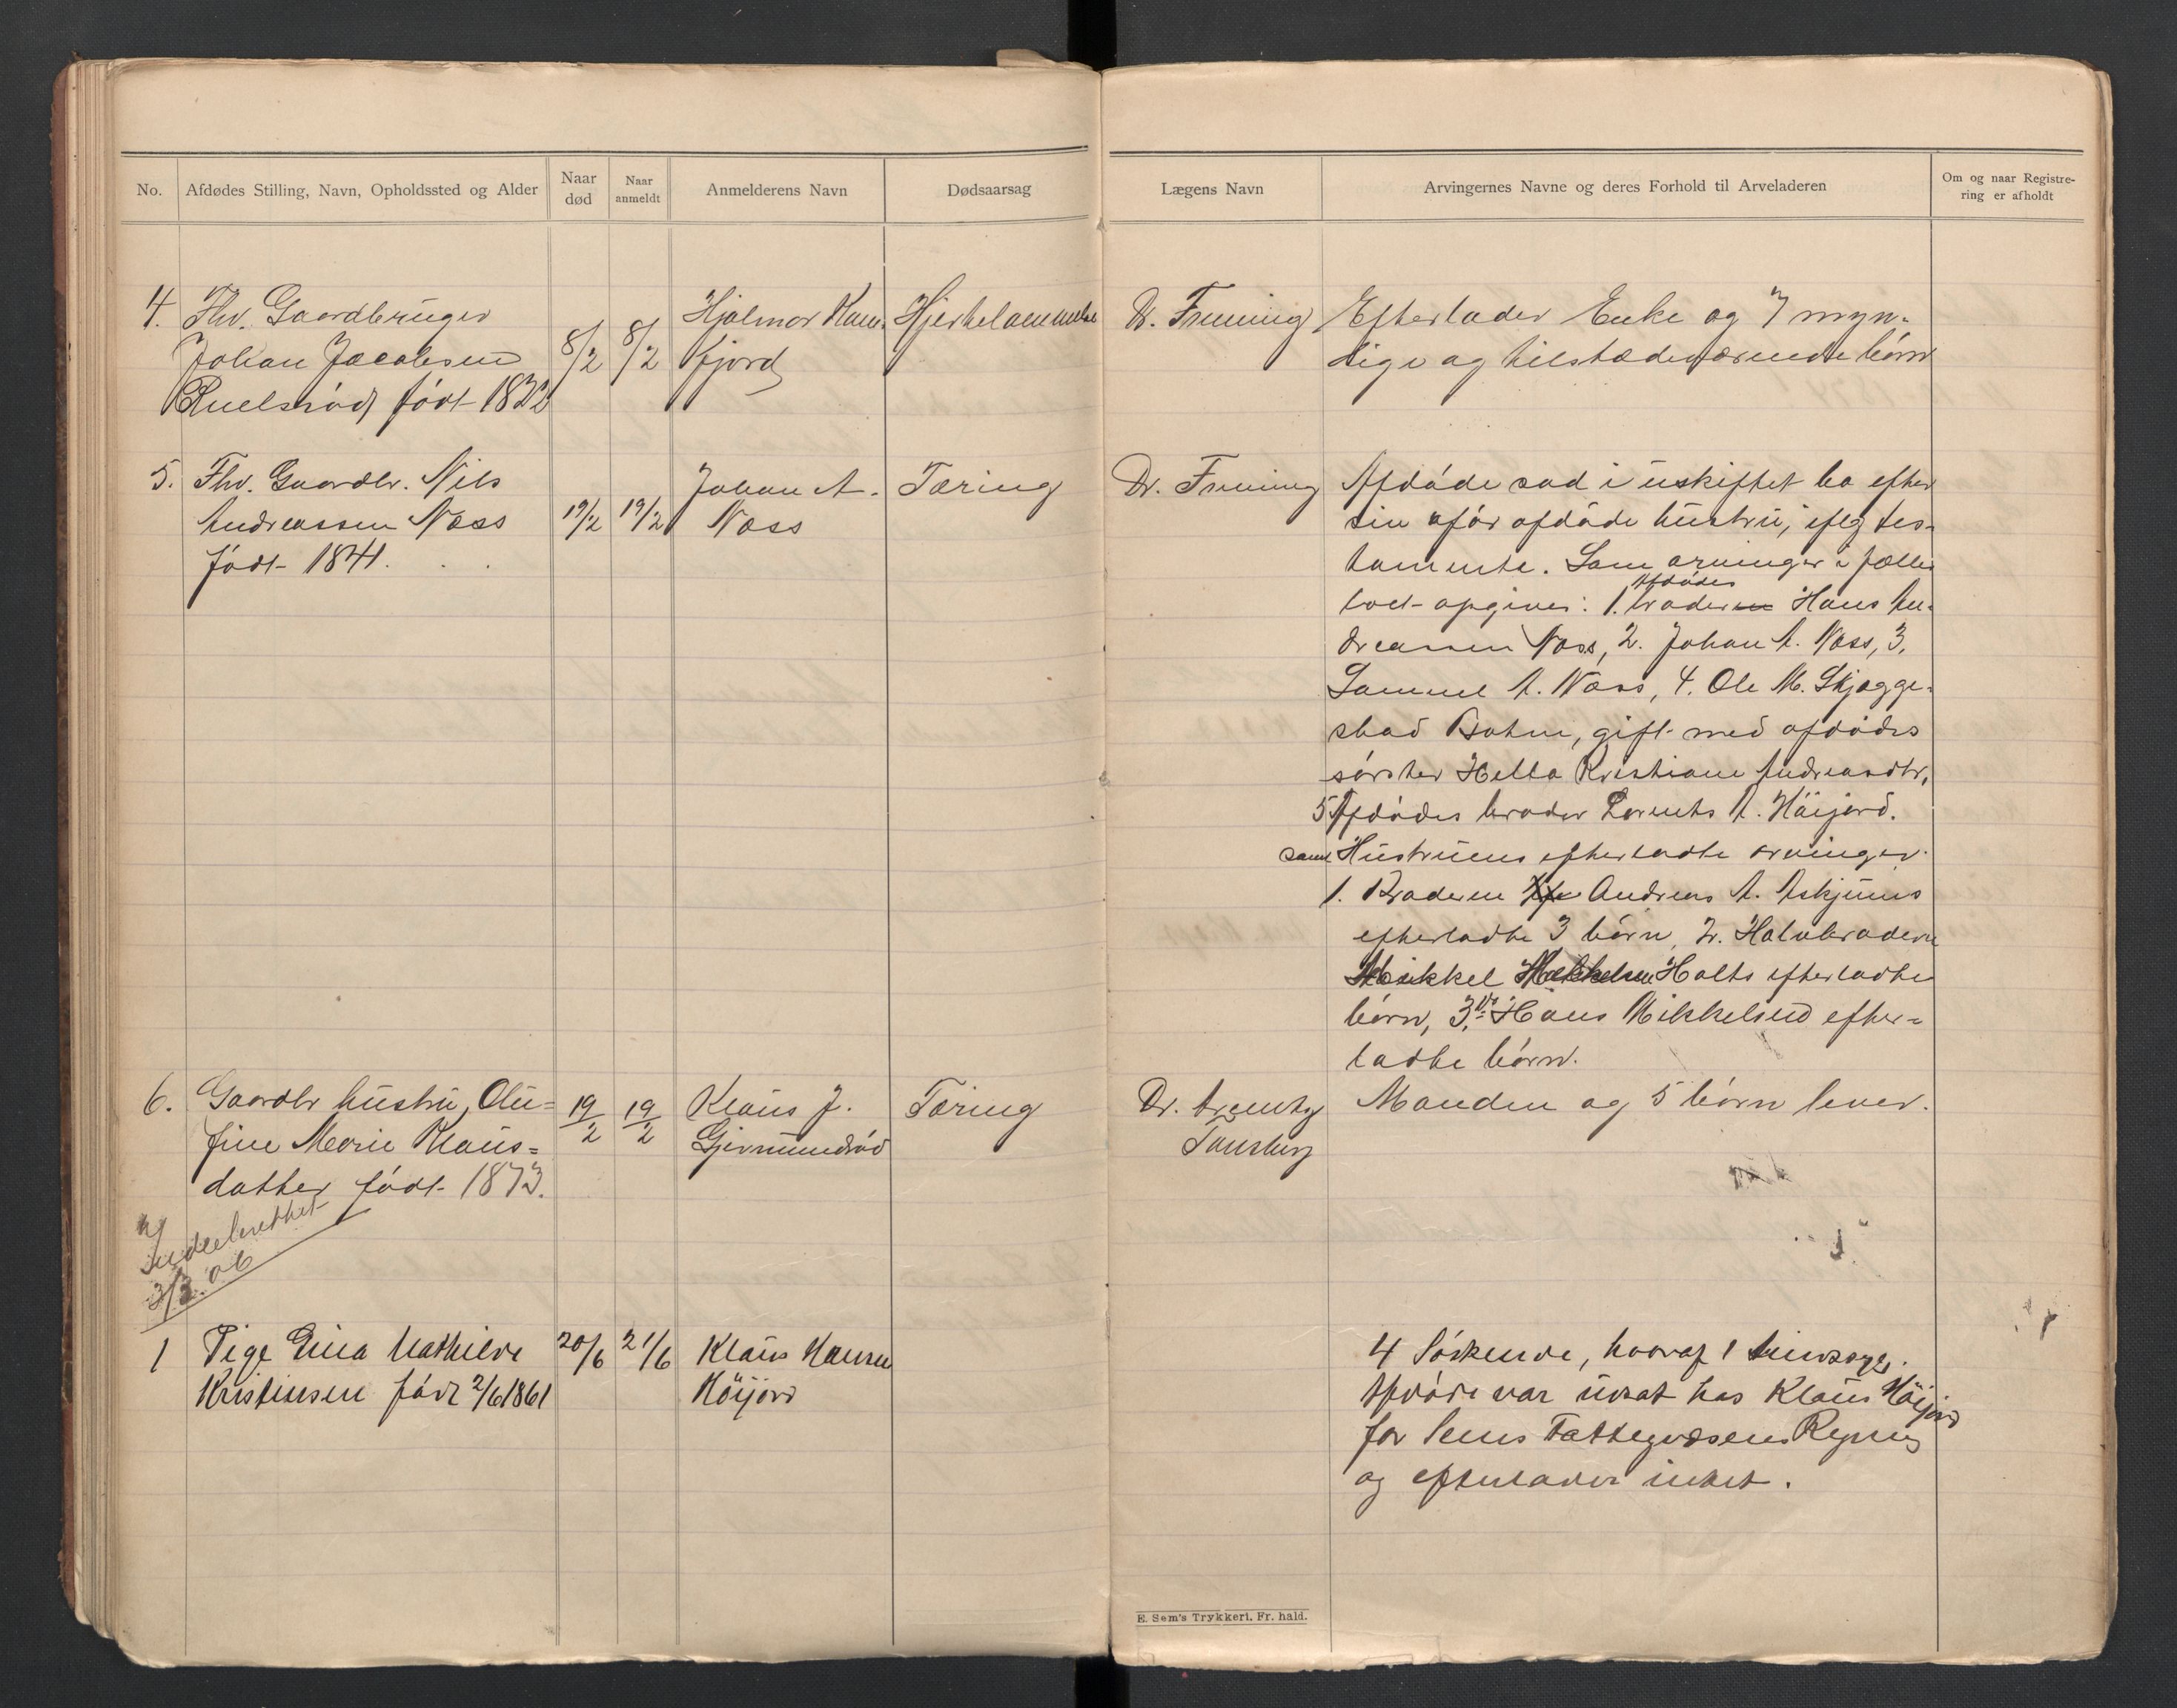 No.
Afdødes Stilling, Navn, Opholdssted og Alder
Naar død
Naar anmeldt
Anmelderens Navn
Dødsaarsag
Lægens Navn
Arvingernes Navne og deres Forhold til Arveladeren
Om og naar Registre-
ring er afholdt
4. Fhv. Gaardbruger
Johan Jacobsen
Ruelsrød født 1822
8/2 8/2
Hjalmar Kam-
fjord
Hjertelammelse
Dr. Fruning
Efterlader Enke og 7 myn-
dige og tilstædeværende børn
5. Fhv. Gaardbr. Nils
Andreassen Næss
født 1841.
19/2 19/2
Johan A.
Næss
Tæring
Dr. Fruning
Afdøde sad i uskiftet bo efter
sin afør afdøde hustru, iflg tes-
tamente. Som arvinger i fælles
boet opgives: 1. Afdødes broder Hans An-
dreassen Næss, 2. Johan A. Næss, 3.
Samuel A. Næss, 4. Ole M. Skjægge-
stad Botne, gift med afdødes
søster Hella Kristiane Andreasdtr,
5 Afdødes broder Lorents A. Høijord.
samt Hustruens efterladte arvinger
1. Broderen Andreas A. Askjums
efterladte 3 børn, 2. Halvbroderen
Mikkel Mikkelsen Holts efterladte
børn, 3. do Hans Mikkelsens efter-
ladte børn.
6. Gaardbr hustru, Olu-
fine Marie Klaus-
datter født 1873.
19/2 19/2
Klaus J.
Gjermundrød
Tæring
Dr.
Tønsberg
Manden og 5 børn lever.
Indberettet
3/3. 06
1 Pige Gina Mathilde
Kristensen født 2/6 1861
20/6 21/6
Klaus Hansen
Höijord
4 Søskende, hvoraf 1 sindssyg.
Afdøde var udsat hos Klaus Höijord
for Sems Fattigvæsens Regning
og efterlader intet.
E. Sem's Trykkeri, Fr.hald.